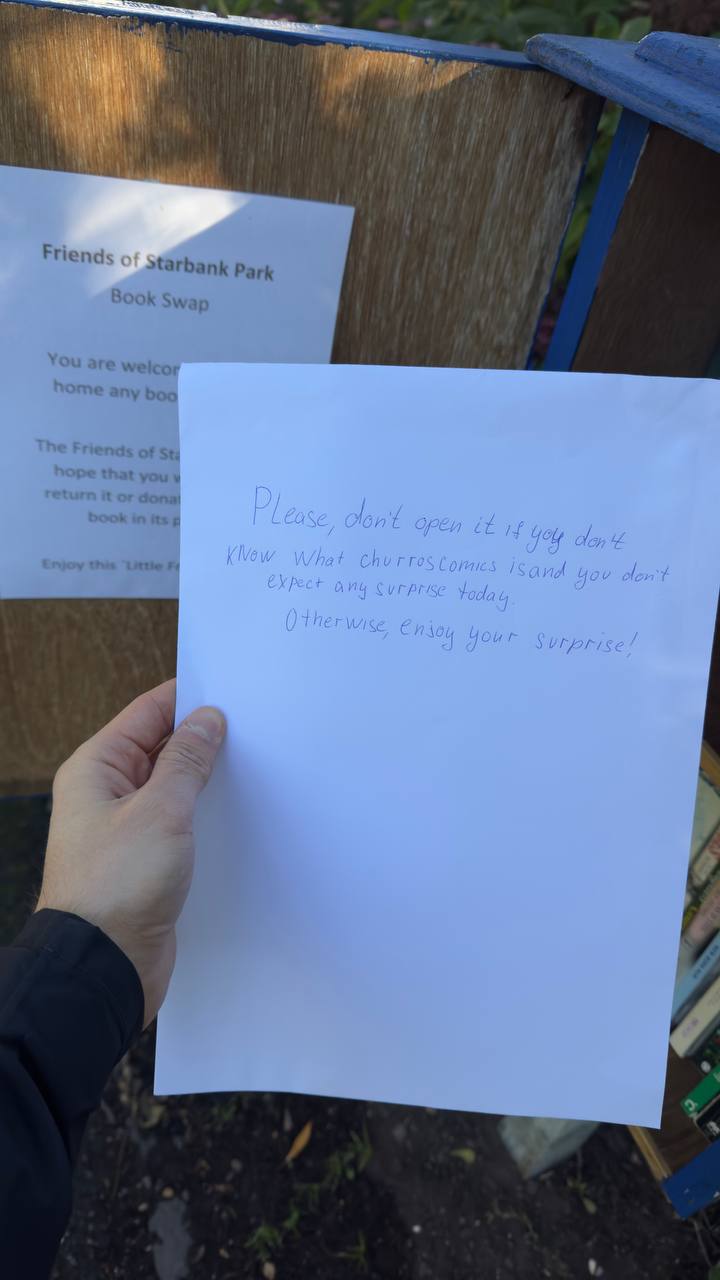 Friends of Starbank Park
Book Swap
You are
home any
The Friends of
hope that you
return it or
book in its
Enjoy this `Little
Please, don't open it if you don't
know what churroscomics is and you don't
expect any surprise today.
Otherwise, enjoy your surprise!